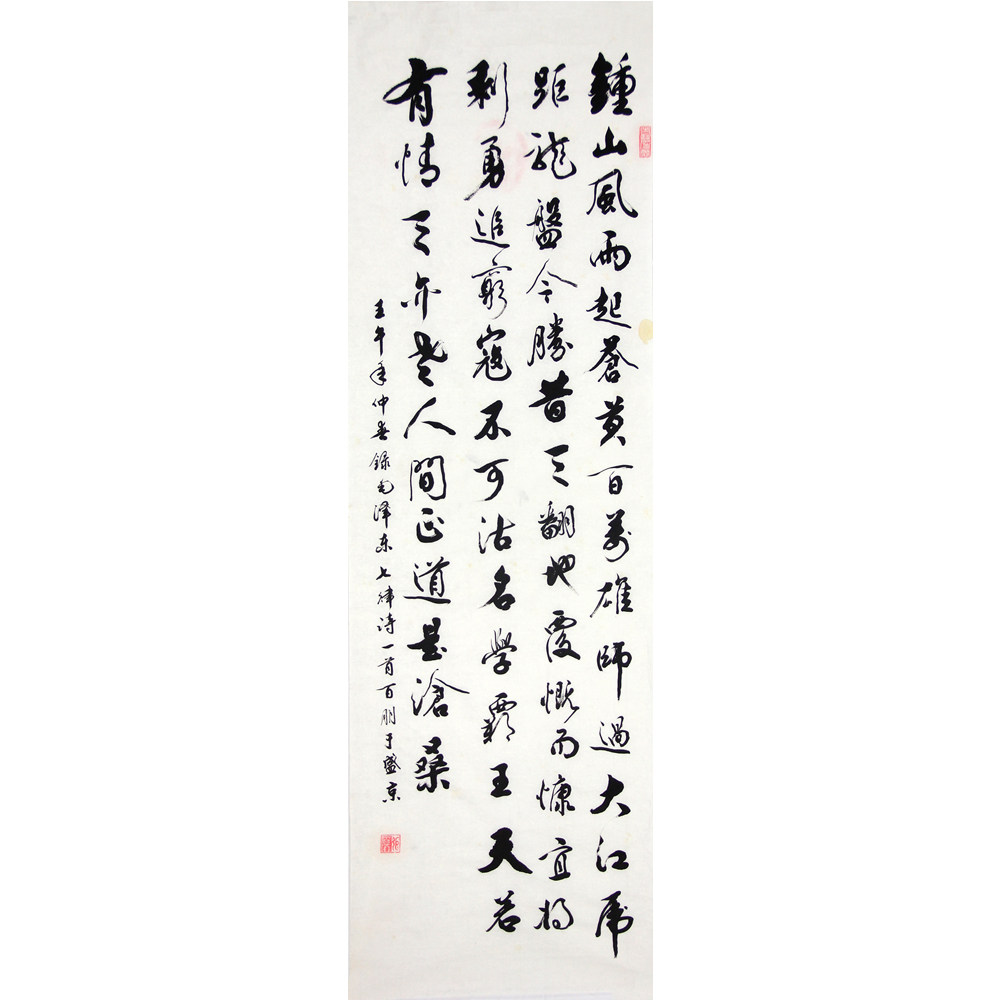 鍾山風雨起蒼黃百萬雄師過大江虎
距龍盤今勝昔天翻地覆慨而慷宜將
剩勇追窮寇不可沽名學霸王天若
有情天亦老人間正道是滄桑
壬午年仲春録毛泽东七律诗一首百朋于盛京